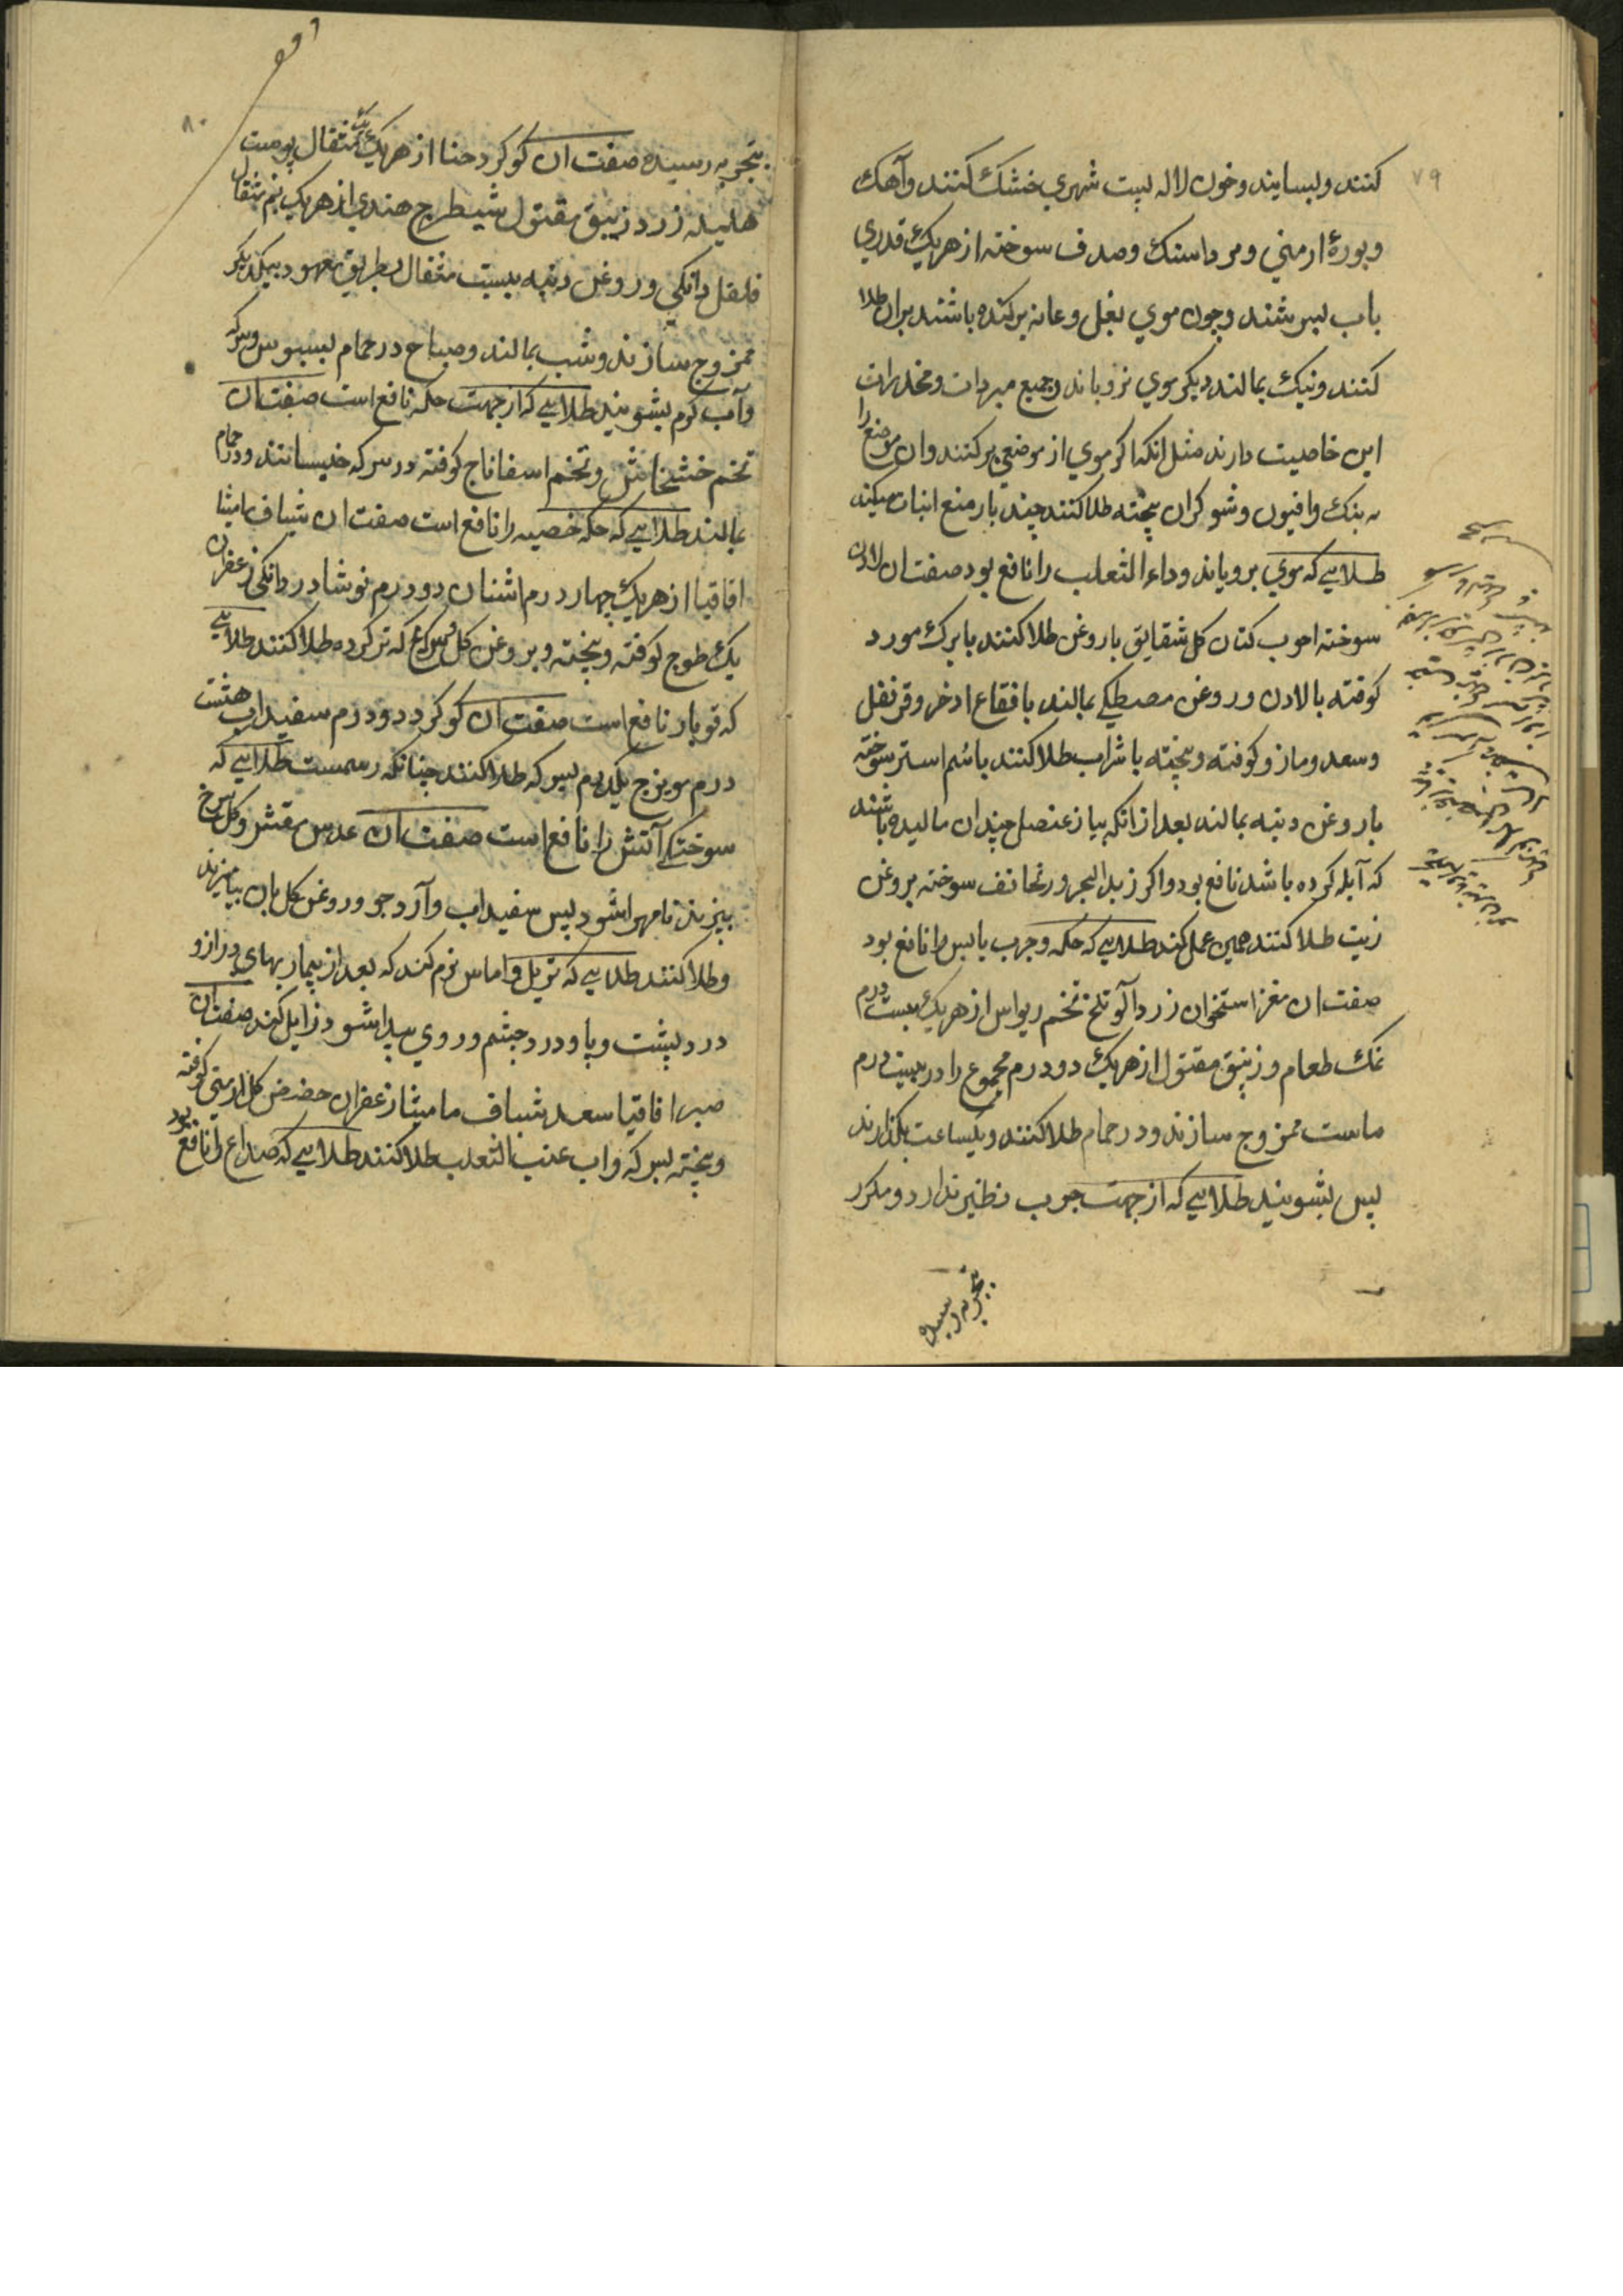 ۷۹
کنند و بسایند و خون لاله پست شهری خشک کنند و آهک
و بورهٔ ارمنی و مرداسنک و صدف سوخته از هریک قدری
باب بسرشند و چون موی بغل و عانه برکنده باشند بران طلا
کنند و نیک بمالند دیکر موی نرویاند و جمیع مبردات و مخدرات
این خاصیت دارند مثل انکه اکر موی از موضعی برکنند وان موضع را
به بنک و افیون و شوکران پخته طلا کنند چند بار منع انبات میکند
طلایی که موی برویاند و داء الثعلب را نافع بود صفت ان لادن
سوخته احوب کتان کل شقایق با روغن طلا کنند یا برک مورد
کوفته با لادن و روغن مصطکی بمالند یا فقاع اذخر و قرنفل
و سعد و مازو کوفته و پخته با شراب طلا کنند یا سم استر سوخته
با روغن دنبه بمالند بعد از انکه پیاز عنصل چندان مالیده باشند
که آبله کرده باشد نافع بود و اکر زبد البحر و رنحاتف سوخته بروغن
زیت طلا کنند همین عمل کند طلایی که حکه و جرب یابس را نافع بود
صفت ان مغز استخوان زردآلو تلخ تخم ریواس از هریک بیست درم
نمک طعام و زیبق مقتول از هریک دو درم مجموع را در بیست درم
ماست ممزوج سازند و در حمام طلا کنند و یکساعت بکذارند
پس بشویند طلایی که از جهت جرب نظیر ندارد و مکرر
بتجربه رسیده
۸۰
بتجربه رسیده صفت ان کوکرد حنا از هریک یک مثقال پوست
هلیله زرد زیبق مقتول شیطرج هندی از هریک نیم مثقال
فلفل دانکی و روغن دنبه بیست مثقال بطریق معهود بیکدیکر
ممزوج سازند و شب بمالند و صباح در حمام بسبوس و سرکه
و آب کرم بشویند طلایی که از جهت حکه نافع است صفت ان
تخم خشخاش و تخم اسفاناج کوفته در سرکه خیسانند و در حمام
بمالند طلایی که حکه خصیه را نافع است صفت ان شیاف مامیثا
اقاقیا از هریک چهار درم اشنان دو درم نوشادر دانکی زعفران
یک طوج کوفته و پخته و بروغن کل و سرکه تر کرده طلا کنند طلایی
که قوبا را نافع است صفت ان کوکرد دو درم سفیداب هشت
درم مویزج یکدرم بسرکه طلا کنند چنانکه رسمست طلایی که
سوختکی آتش را نافع است صفت ان عدس مقشر و کل سرخ
بپزند تا مهرا شود پس سفیداب و آرد جو و روغن کل بان بیامیزند
و طلا کنند طلایی که تربل و اماس نرم کند که بعد از بیماریهای دراز و
درد پشت و پا و درد چشم و روی پیدا شود زایل کند صفت ان
صبر اقاقیا سعد شیاف مامیثا زعفران حضض کل ارمنی کوفته
و پخته بسرکه و اب عنب الثعلب طلا کنند طلایی که صداع را نافع بود